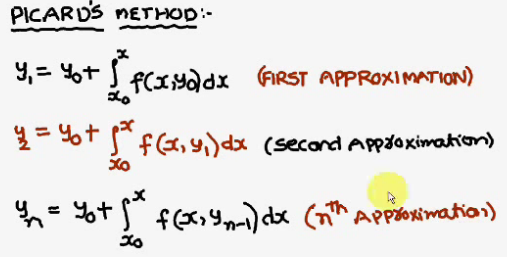 PICARD'S METHOD:-
y₁ = y₀ + ∫ₓ₀ˣ f(x,y₀)dx (FIRST APPROXIMATION)
y₂ = y₀ + ∫ₓ₀ˣ f(x,y₁)dx (Second Approximation)
yₙ = y₀ + ∫ₓ₀ˣ f(x,yₙ₋₁)dx (nᵗʰ Approximation)